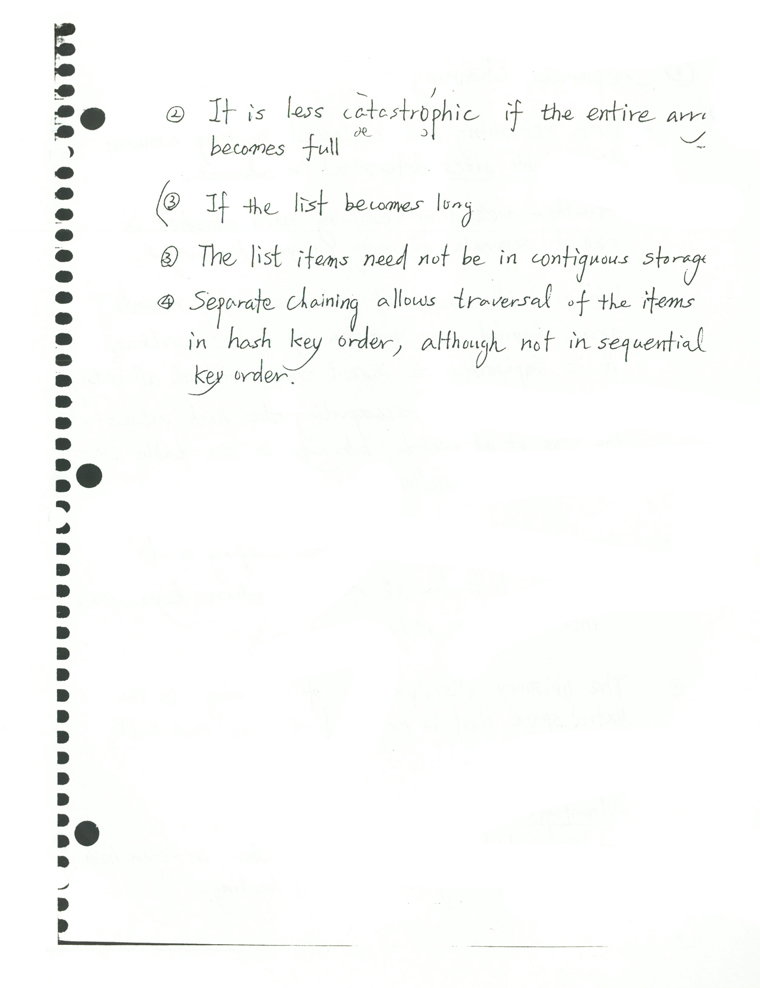 ② It is less catastrophic if the entire arr
æ ɔ
becomes full
(③ If the list becomes long
③ The list items need not be in contiguous storage
④ Separate chaining allows traversal of the items
in hash key order, although not in sequential
key order.